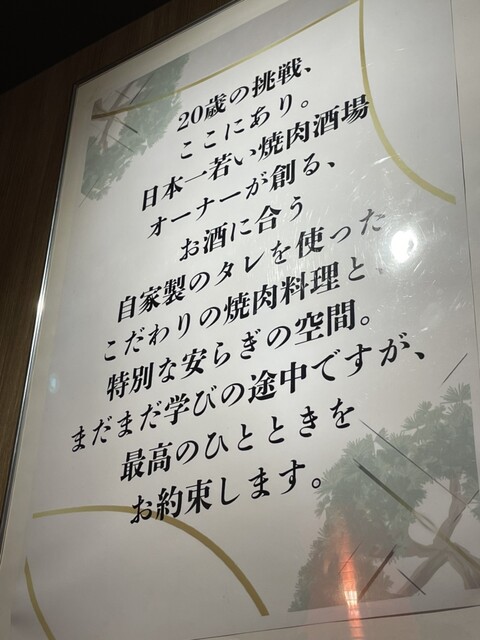 20歳の挑戦、
ここにあり。
日本一若い焼肉酒場
オーナーが創る、
お酒に合う
自家製のタレを使った
こだわりの焼肉料理と、
特別な安らぎの空間。
まだまだ学びの途中ですが、
最高のひとときを
お約束します。